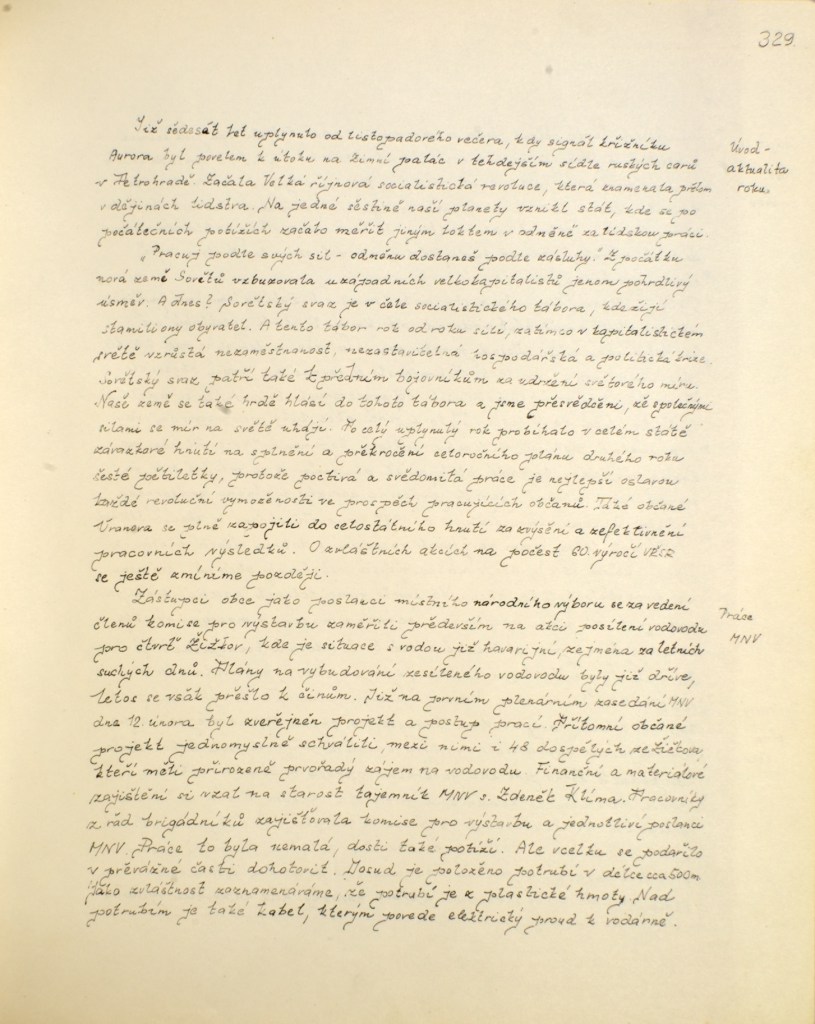 329
Již šedesát let uplynulo od listopadového večera, kdy signál křižníku
Aurora byl povelem k útoku na Zimní palác v tehdejším sídle ruských carů
v Petrohradě. Začala Velká říjnová socialistická revoluce, která znamenala přelom
v dějinách lidstva. Na jedné šestině naší planety vznikl stát, kde se po
počátečních potížích začalo měřit jiným loktem v odměně za lidskou práci.
„Pracuj podle svých sil - odměnu dostaneš podle zásluhy." Z počátku
nová země Sovětů vzbuzovala u západních velkokapitalistů jenom pohrdlivý
úsměv. A dnes? Sovětský svaz je v čele socialistického tábora, kde žijí
stamiliony obyvatel. A tento tábor rok od roku sílí, zatímco v kapitalistickém
světě vzrůstá nezaměstnanost, nezastavitelná hospodářská a politická krize.
Sovětský svaz patří také k předním bojovníkům za udržení světového míru.
Naší země se také hrdě hlásí do tohoto tábora a jsme přesvědčeni, že společnými
silami se mír na světě uhájí. Po celý uplynulý rok probíhalo v celém státě
závazkové hnutí na splnění a překročení celoročního plánu druhého roku
šesté pětiletky, protože poctivá a svědomitá práce je nejlepší oslavou
každé revoluční vymoženosti ve prospěch pracujících občanů. Také občané
Vranova se plně zapojili do celostátního hnutí za zvýšení a zefektivnění
pracovních výsledků. O zvláštních akcích na počest 60. výročí VŘSR
se ještě zmíníme později.
Zástupci obce jako poslanci místního národního výboru se za vedení
členů komise pro výstavbu zaměřili především na akci posílení vodovodu
pro čtvrť Žižkov, kde je situace s vodou již havarijní, zejména za letních
suchých dnů. Plány na vybudování zesíleného vodovodu byly již dříve,
letos se však přešlo k činům. Již na prvním plenárním zasedání MNV
dne 12. února byl zveřejněn projekt a postup prací. Přítomní občané
projekt jednomyslně schválili, mezi nimi i 48 dospělých ze Žižkova,
kteří měli přirozeně prvořadý zájem na vodovodu. Finanční a materiálové
zajištění si vzal na starost tajemník MNV s. Zdeněk Klíma. Pracovníky
z řad brigádníků zajišťovala komise pro výstavbu a jednotliví poslanci
MNV. Práce to byla nemalá, dosti také potíží. Ale vcelku se podařilo
v převážné části dohotovit. Dosud je položeno potrubí v délce cca 500m
Jako zvláštnost zaznamenáváme, že potrubí je z plastické hmoty. Nad
potrubím je také kabel, kterým povede elektrický proud k vodárně.
Úvod -
aktualita
roku
Práce
MNV